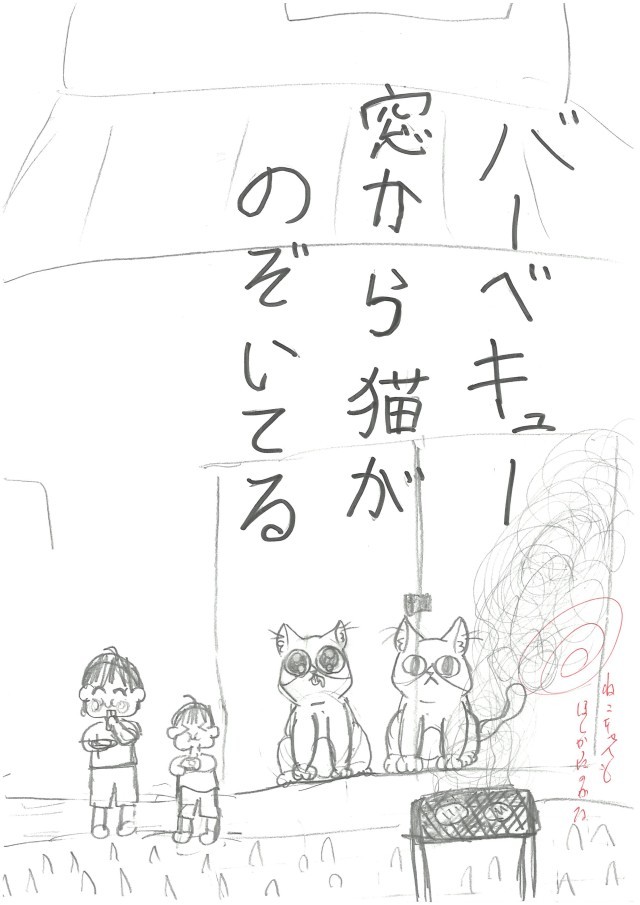 バーベキュー
窓から猫が
のぞいてる
ねこちゃんも
ほしかったのかな